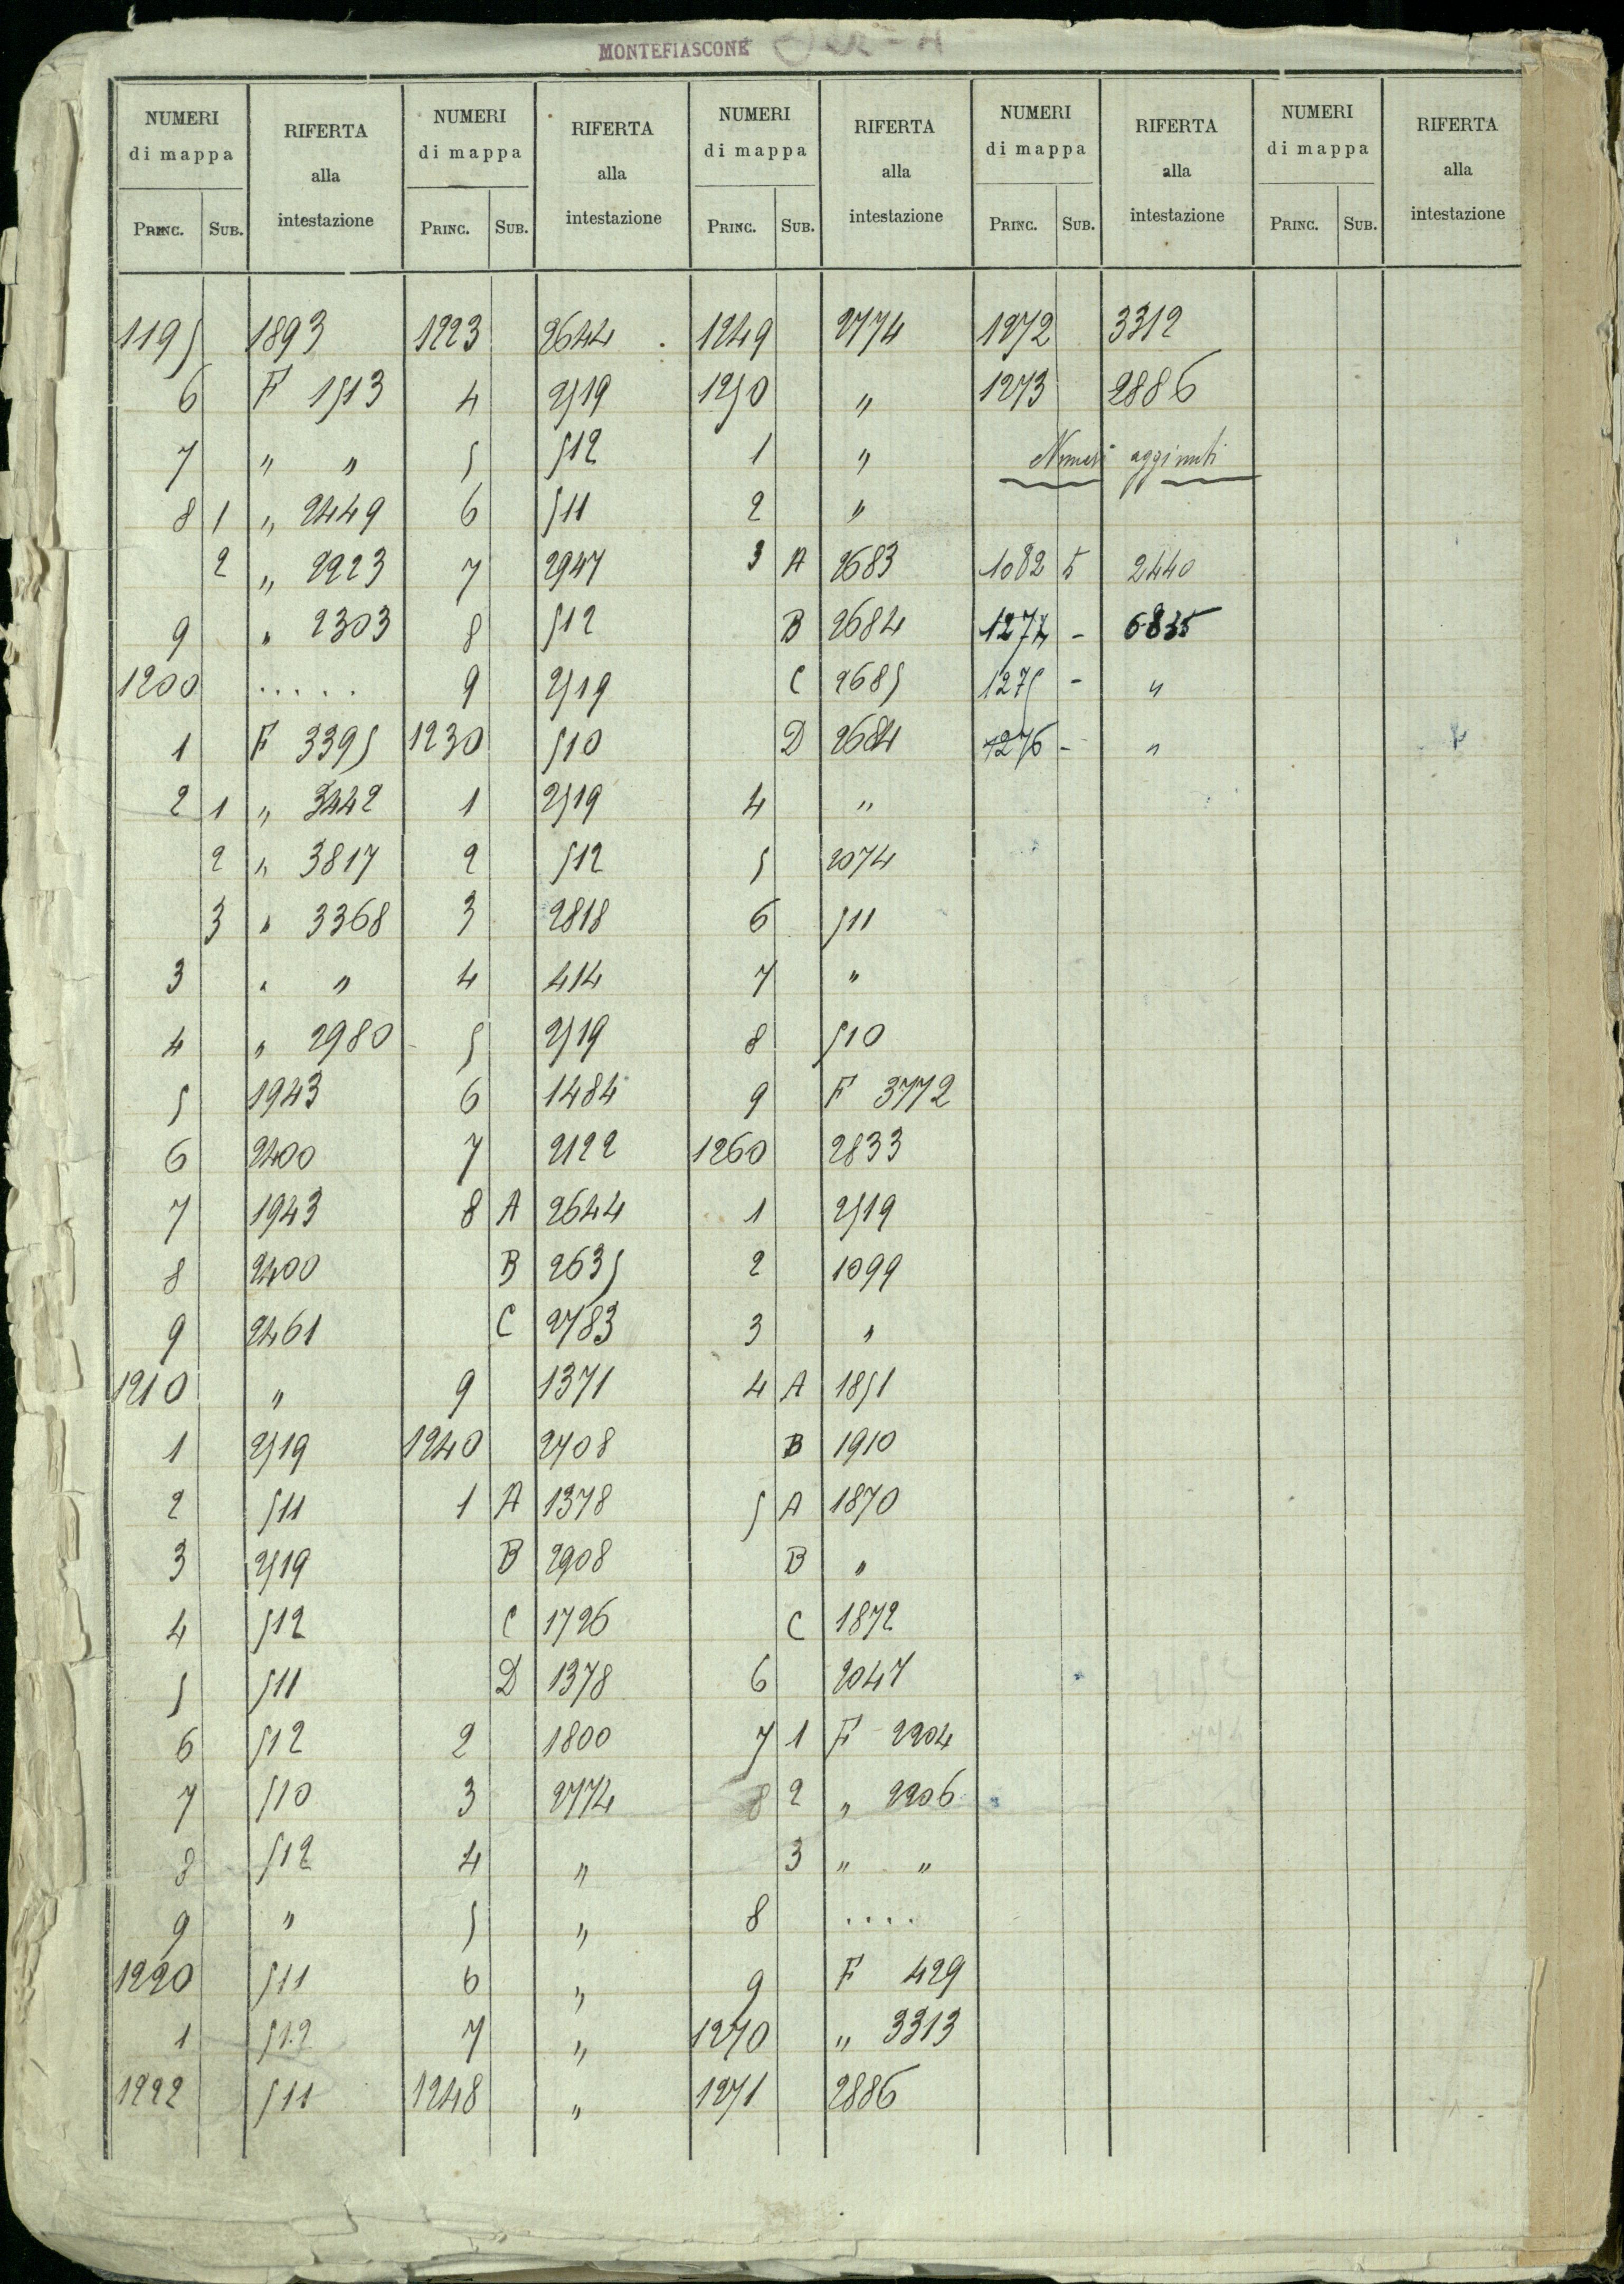 MONTEFIASCONE
NUMERI di mappa | RIFERTA alla intestazione | NUMERI di mappa | RIFERTA alla intestazione | NUMERI di mappa | RIFERTA alla intestazione | NUMERI di mappa | RIFERTA alla intestazione | NUMERI di mappa | RIFERTA alla intestazione
PRINC. | SUB. | PRINC. | SUB. | PRINC. | SUB. | PRINC. | SUB. | PRINC. | SUB.
1195 | 1893 | 1223 | 2644 | 1249 | 2774 | 1272 | 3312
6 | F 1513 | 4 | 2519 | 1250 | " | 1273 | 2886
7 | " " | 5 | 512 | 1 | " | Numeri aggiunti
8 1 | " 2449 | 6 | 511 | 2 | "
2 | " 2923 | 7 | 2947 | 3 A | 2683 | 1082 5 | 2440
9 | " 2303 | 8 | 512 | B | 2684 | 1274 - | 6835
1200 | ..... | 9 | 2519 | C | 2685 | 1275 - | "
1 | F 3395 | 1230 | 510 | D | 2684 | 1276 - | "
2 1 | " 3442 | 1 | 2519 | 4 | "
2 | " 3817 | 2 | 512 | 5 | 2074
3 | " 3368 | 3 | 2818 | 6 | 511
3 | " " | 4 | 414 | 7 | "
4 | " 2980 | 5 | 2519 | 8 | 510
5 | 1943 | 6 | 1484 | 9 | F 3772
6 | 2400 | 7 | 2122 | 1260 | 2833
7 | 1943 | 8 A | 2644 | 1 | 2519
8 | 2400 | B | 2635 | 2 | 1099
9 | 2461 | C | 2783 | 3 | "
1210 | " | 9 | 1371 | 4 A | 1851
1 | 2519 | 1240 | 2708 | B | 1910
2 | 511 | 1 A | 1378 | 5 A | 1870
3 | 2519 | B | 2908 | B | "
4 | 512 | C | 1726 | C | 1872
5 | 511 | D | 1378 | 6 | 2047
6 | 512 | 2 | 1800 | 7 1 | F 2204
7 | 510 | 3 | 2774 | 8 2 | " 2206
8 | 512 | 4 | " | 3 | " "
9 | " | 5 | " | 8 | ....
1220 | 511 | 6 | " | 9 | F 429
1 | 512 | 7 | " | 1270 | " 3313
1222 | 511 | 1248 | " | 1271 | 2886